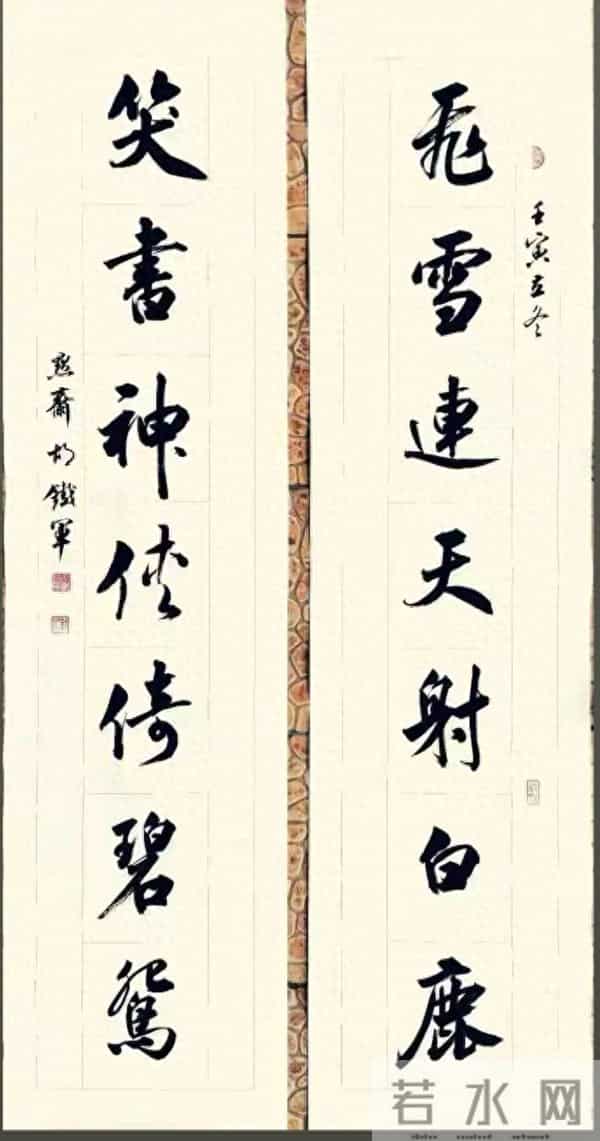 壬寅立冬
飛雪連天射白鹿
笑書神俠倚碧鴛
齋胡鐵軍
若水网